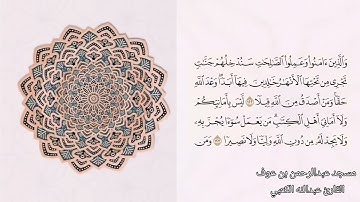 وَالَّذِينَ ءَامَنُوا وَعَمِلُوا الصَّٰلِحَٰتِ سَنُدْخِلُهُمْ جَنَّٰتٍ
تَجْرِى مِن تَحْتِهَا الْأَنْهَٰرُ خَٰلِدِينَ فِيهَا أَبَدًا وَعْدَ اللَّهِ
حَقًّا وَمَنْ أَصْدَقُ مِنَ اللَّهِ قِيلًا ۝ لَّيْسَ بِأَمَانِيِّكُمْ
وَلَا أَمَانِىِّ أَهْلِ الْكِتَٰبِ مَن يَعْمَلْ سُوءًا يُجْزَ بِهِۦ
وَلَا يَجِدْ لَهُۥ مِن دُونِ اللَّهِ وَلِيًّا وَلَا نَصِيرًا ۝ وَمَن
مسجد عبدالرحمن بن عوف
القارئ عبدالله